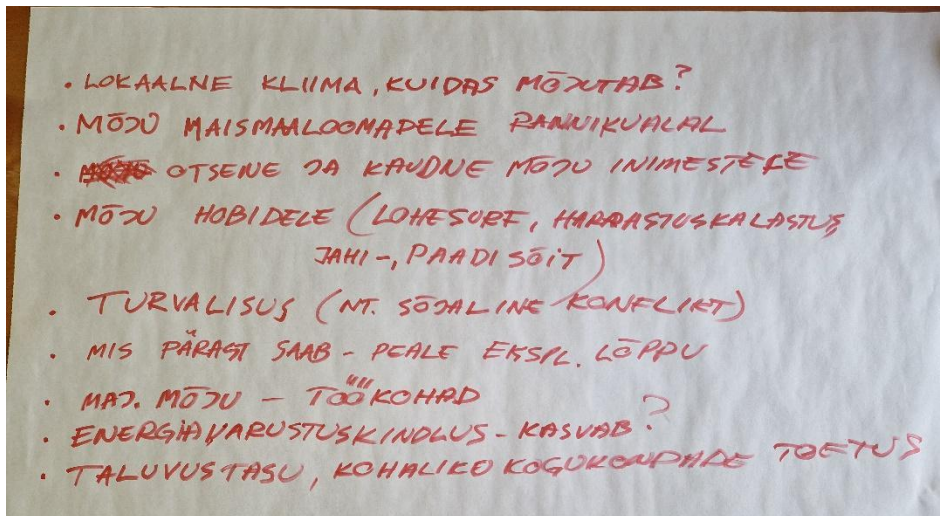 • LOKAALNE KLIIMA, KUIDAS MÕJUTAB?
• MÕJU MAISMAALOOMADELE RANNIKUALAL
• OTSENE JA KAUDNE MÕJU INIMESTELE
• MÕJU HOBIDELE (LOHESURF, HARRASTUSKALASTUS,
JAHI-, PAADISÕIT)
• TURVALISUS (NT. SÕJALINE KONFLIKT)
• MIS PÄRAST SAAB - PEALE EKSPL. LÕPPU
• MAJ. MÕJU - TÖÖKOHAD
• ENERGIAVARUSTUSKINDLUS - KASVAB?
• TALUVUSTASU, KOHALIKO KOGUKONDADE TOETUS